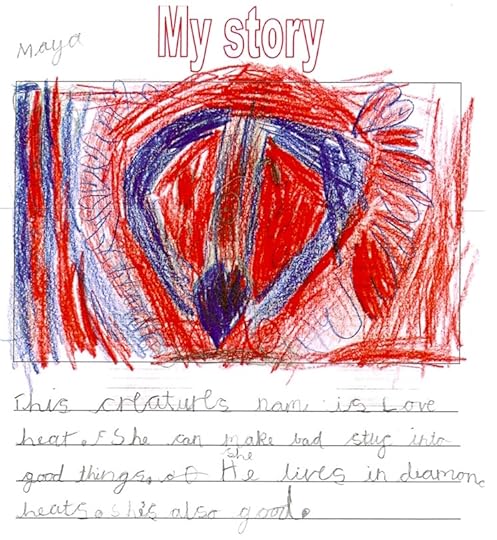 My story
Maya
This creatures nam is Love
heat. She can make bad stug into
she
good things. He lives in diamon
heats. shis also good.